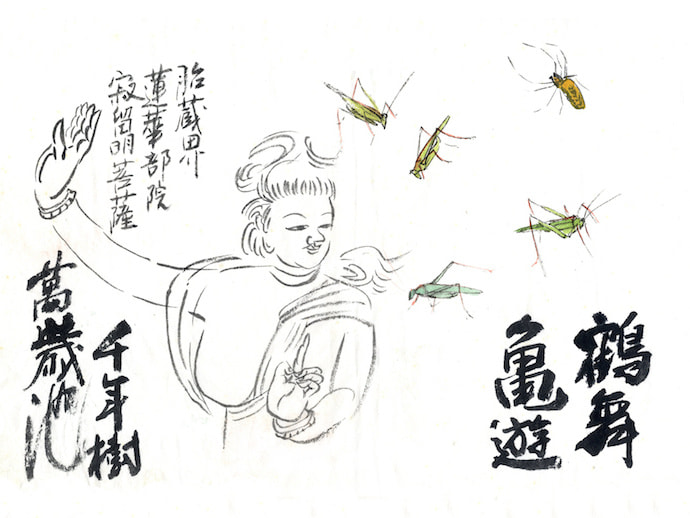 鶴舞
亀遊
胎蔵界
蓮華部院
寂留明菩薩
千年樹
萬歳池